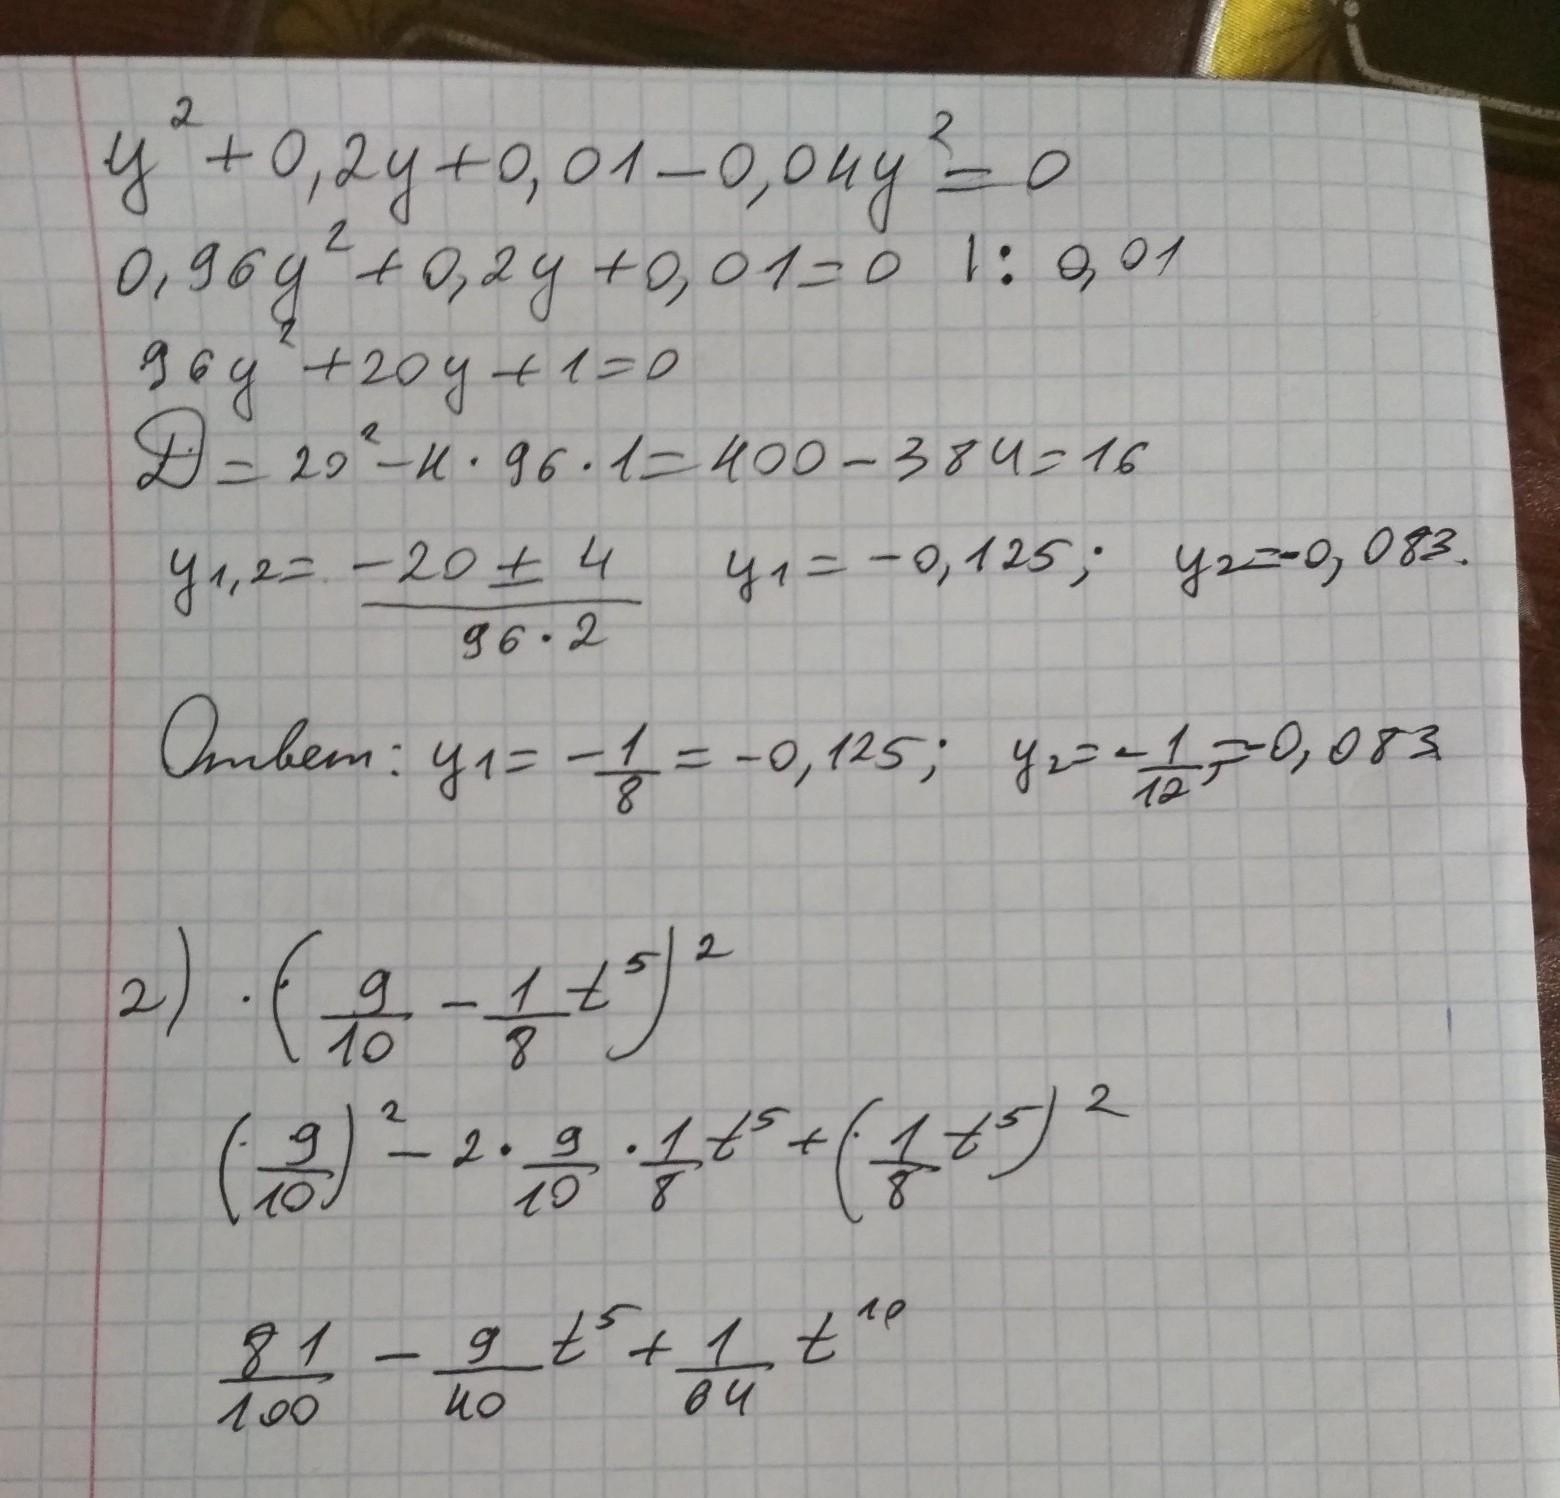 y² + 0,2y + 0,01 - 0,04y² = 0
0,96y² + 0,2y + 0,01 = 0 |: 0,01
96y² + 20y + 1 = 0
D = 20² - 4 · 96 · 1 = 400 - 384 = 16
y1,2 = (-20 ± 4)/(96 · 2) y1 = -0,125; y2 = -0,083.
Ответ: y1 = -1/8 = -0,125; y2 = -1/12; = -0,083
2) · (9/10 - 1/8 t⁵)²
(9/10)² - 2 · 9/10 · 1/8 t⁵ + (1/8 t⁵)²
81/100 - 9/40 t⁵ + 1/64 t¹⁰